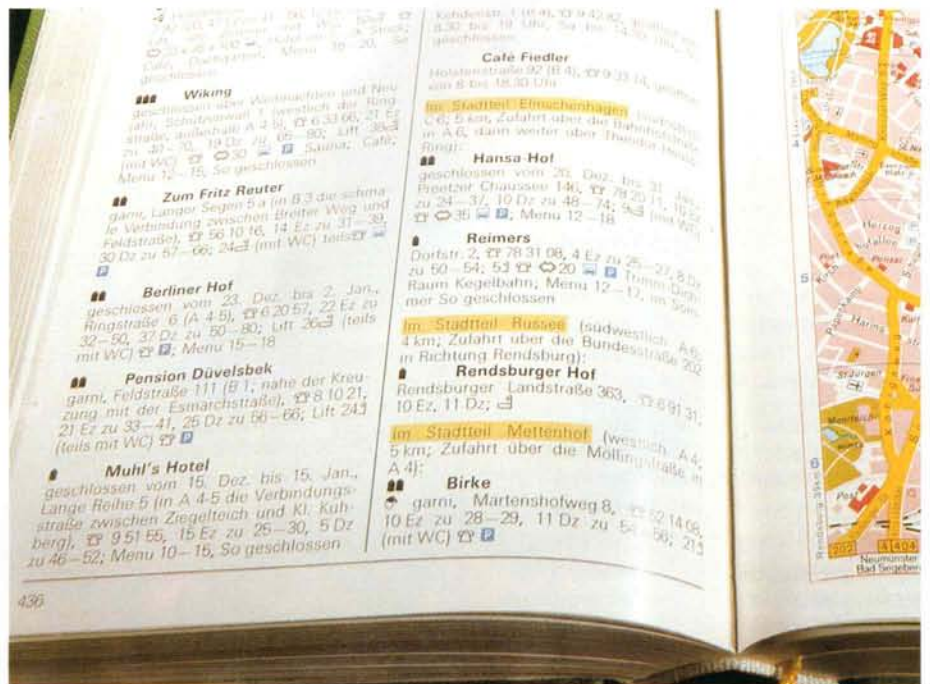 geschlossen
Wiking
geschlossen über Weihnachten und Neu
jahr, Schützenwall 1 (westlich der Ring
straße, außerhalb A 4-5), 6 33 66, 21 Ez
zu 48–70, 19 Dz zu 65–90; Lift
(mit WC) 30 P Sauna; Café,
Menu 12–15, So geschlossen
Zum Fritz Reuter
garni, Langer Segen 5 a (in B 3 die schma
le Verbindung zwischen Breiter Weg und
Feldstraße), 56 10 16, 14 Ez zu 31–39,
30 Dz zu 57–66; 24 (mit WC) teils
P
Berliner Hof
geschlossen vom 23. Dez. bis 2. Jan.,
Ringstraße 6 (A 4-5), 6 20 57, 22 Ez zu
32–50, 37 Dz zu 50–80; Lift 26 (teils
mit WC) P; Menu 15–18
Pension Düvelsbek
garni, Feldstraße 111 (B 1; nahe der Kreu
zung mit der Esmarchstraße), 8 10 21,
21 Ez zu 33–41, 25 Dz zu 56–66; Lift 24
(teils mit WC) P
Muhl's Hotel
geschlossen vom 15. Dez. bis 15. Jan.,
Lange Reihe 5 (in A 4-5 die Verbindungs-
straße zwischen Ziegelteich und Kl. Kuh-
berg), 9 51 55, 15 Ez zu 25–30, 5 Dz
zu 46–52; Menu 10–15, So geschlossen
436
geschlossen
Café Fiedler
Holstenstraße 92 (B 4), 9 33 14, geöffnet
von 8 bis 18.30 Uhr
Im Stadtteil Elmschenhagen
C 6; 5 km, Zufahrt über die Bahnhofstraße
in A 6, dann weiter über
Ring):
Hansa-Hof
geschlossen vom 20. Dez. bis 31. Jan.,
Preetzer Chaussee 146, 78 20 11, 10 Ez
zu 24–37, 10 Dz zu 48–74; (mit WC)
35 P; Menu 12–18
Reimers
Dorfstr. 2, 78 31 08, 4 Ez zu 25–27, 8 Dz
zu 50–54; 5 20 P
Raum Kegelbahn; Menu 12–17, im Som
mer So geschlossen
Im Stadtteil Russee (südwestlich A 6;
4 km; Zufahrt über die Bundesstraße 202
in Richtung Rendsburg):
Rendsburger Hof
Rendsburger Landstraße 363, 6 91 31,
10 Ez, 11 Dz;
Im Stadtteil Mettenhof (westlich A 4;
5 km; Zufahrt über die Möllingstraße in
A 4):
Birke
garni, Martenshofweg 8, 52 14 08,
10 Ez zu 28–29, 11 Dz zu 54–56; 21
(mit WC) P
5
Herzog
Hatling
St.Jürgen
6
Post
Rendsburg 35km
202
4 404
Neumünster
Bad Segeberg